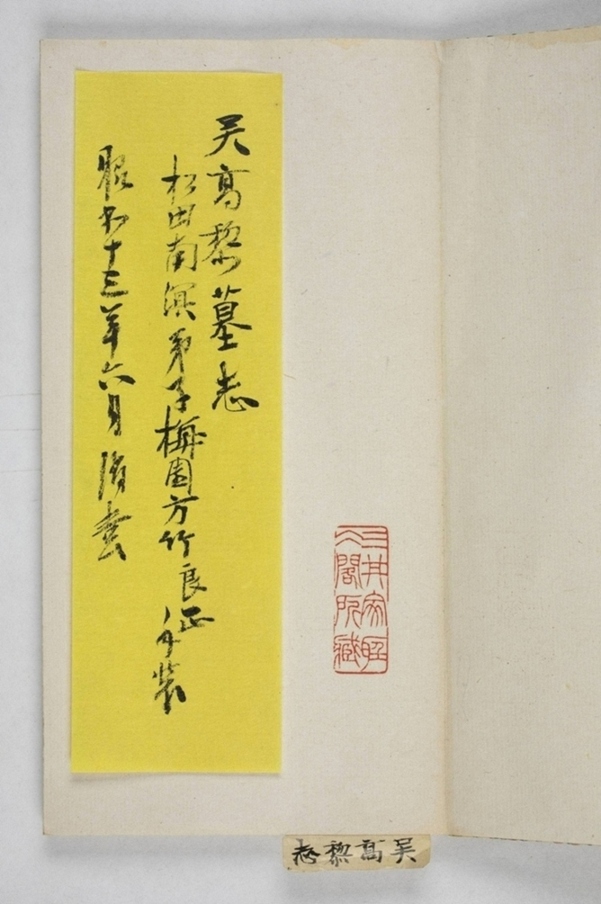 吴高黎墓志
松田南溟弟子梅園方竹良正手装
昭和十三年六月
三井家聽
冰閣所藏
吴高黎志